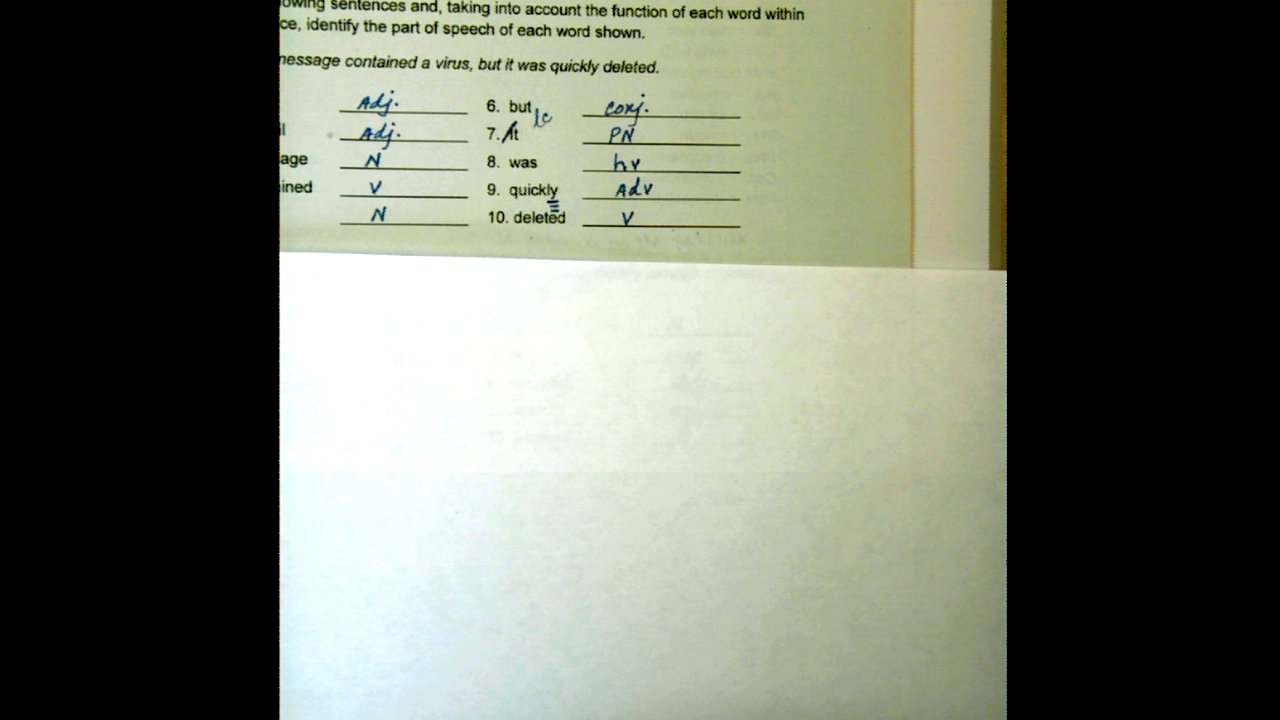 owing sentences and, taking into account the function of each word within
ce, identify the part of speech of each word shown.
message contained a virus, but it was quickly deleted.
Adj. 6. but conj.
il Adj. 7. It lc PN
age N 8. was hv
ined V 9. quickly Adv
N 10. deleted V